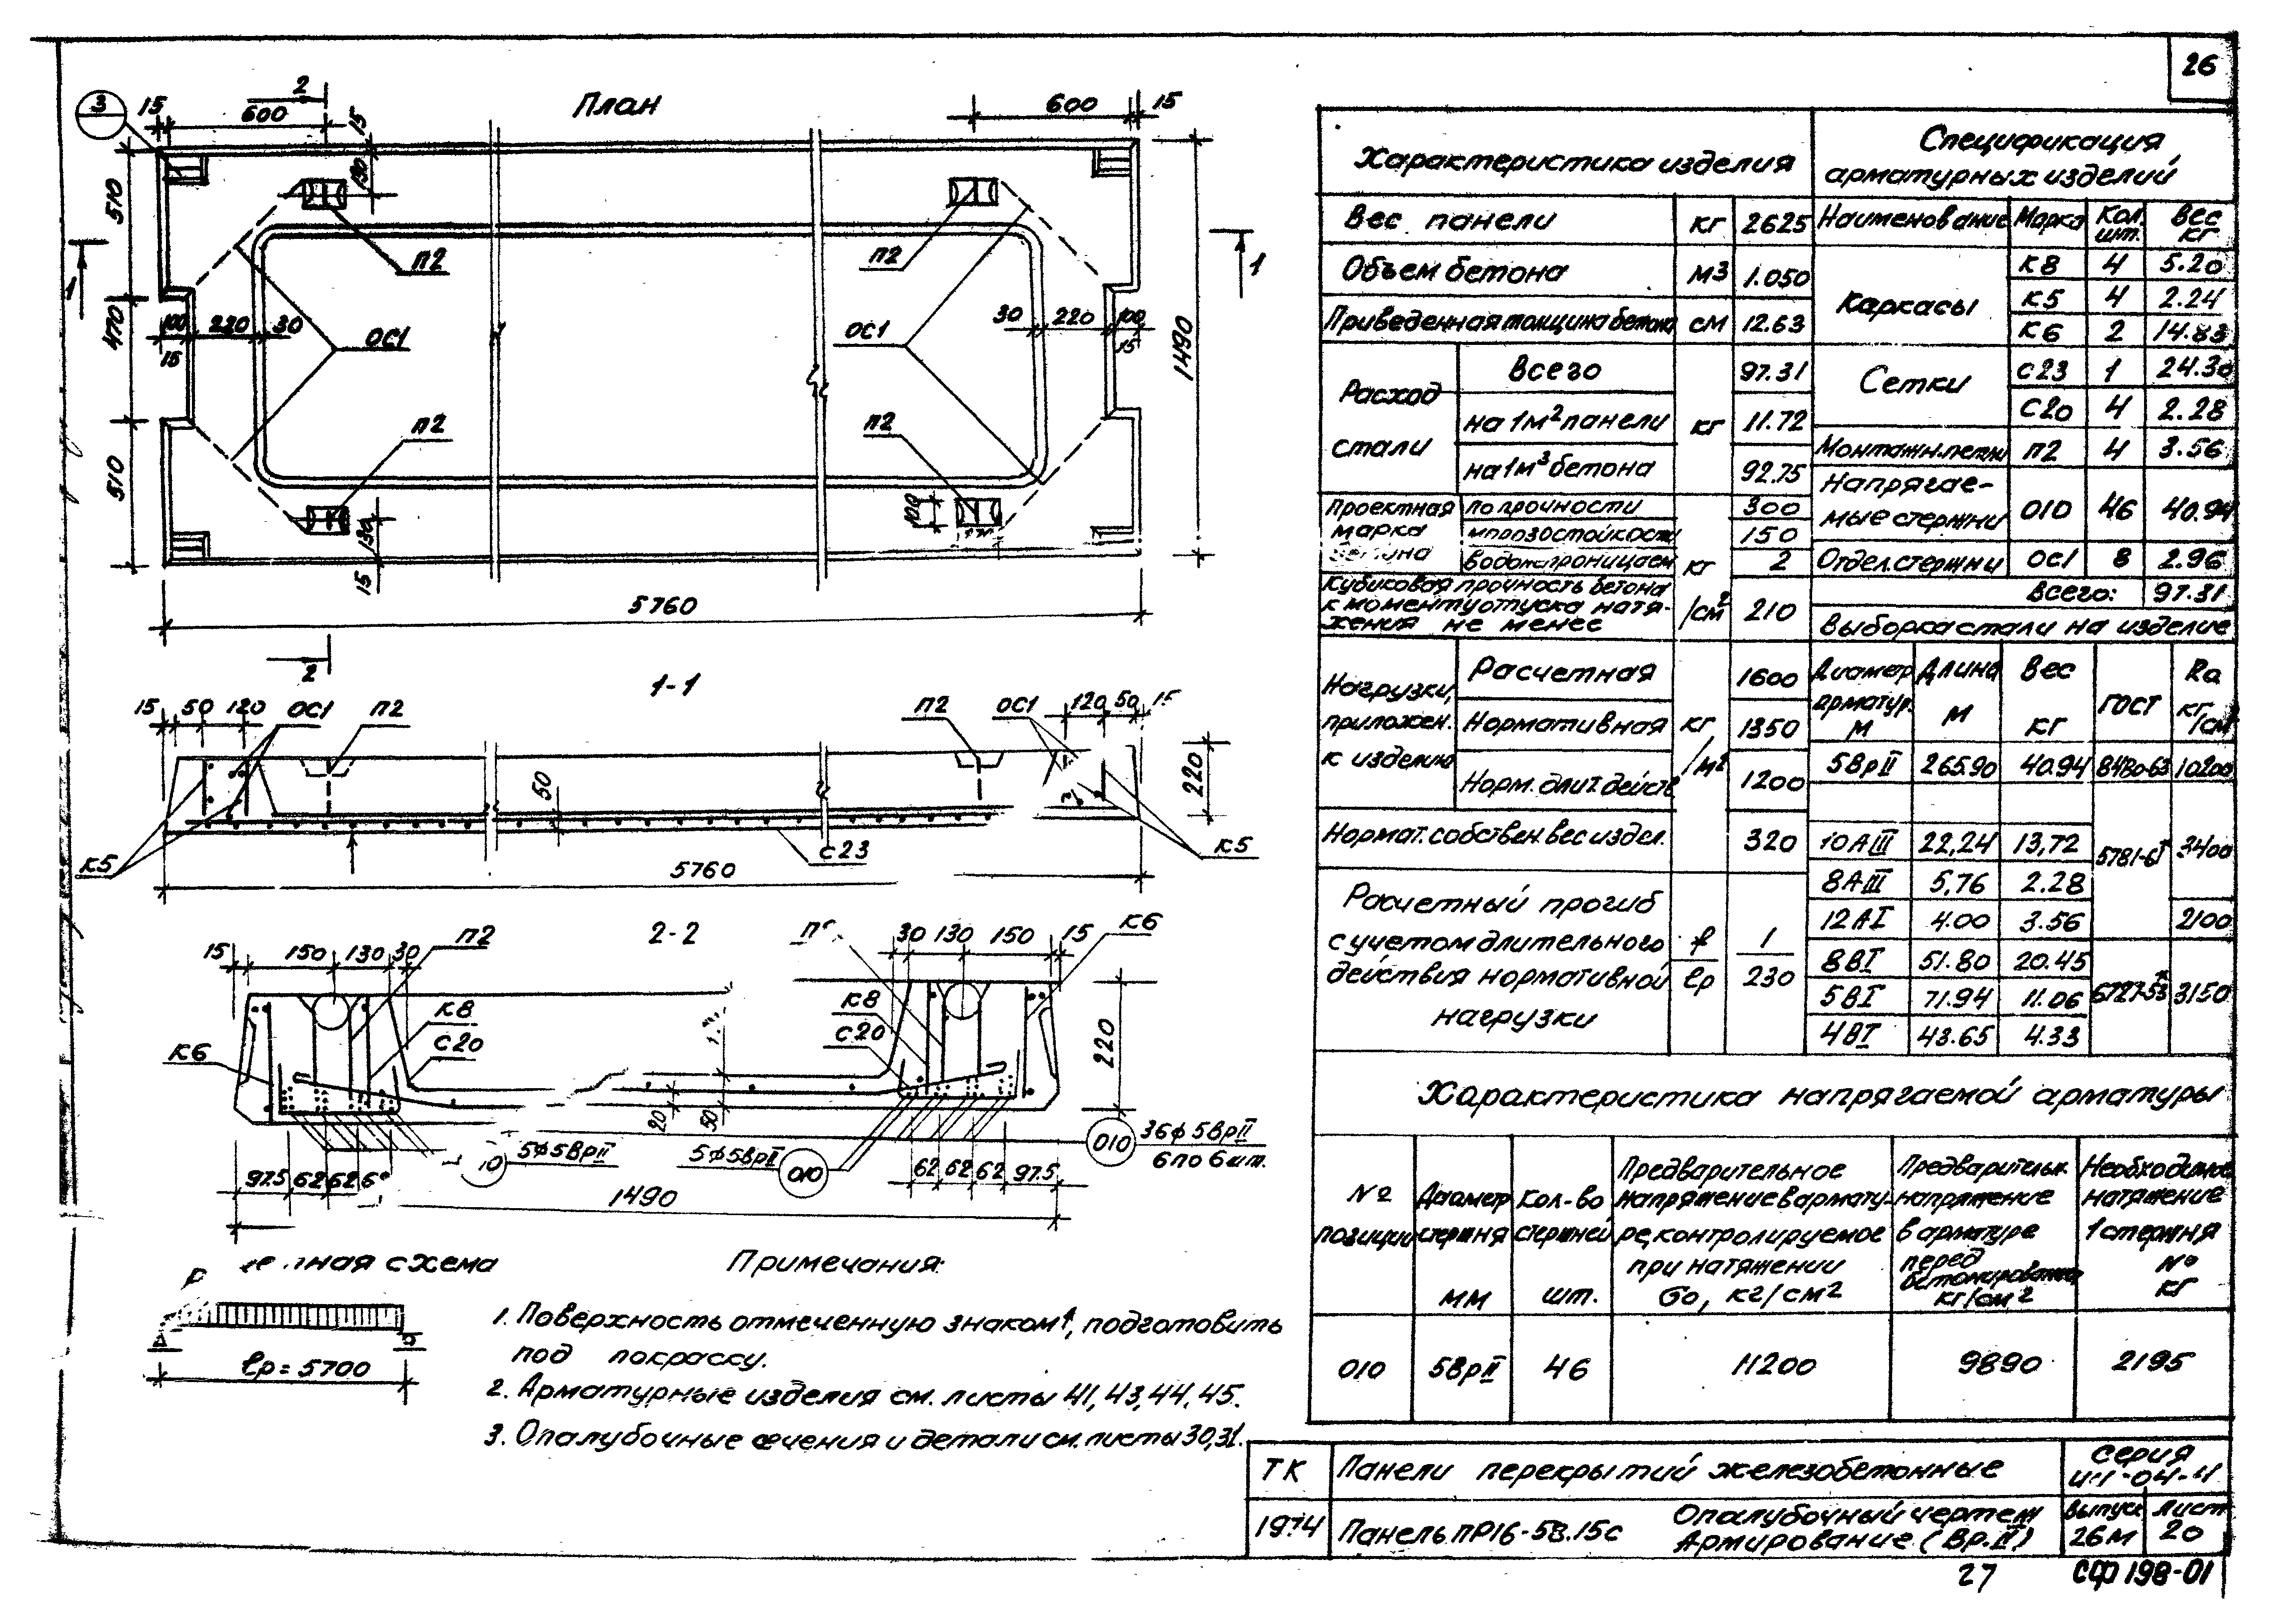 26
План
3
2
15
600
15
130
600
15
510
470
510
1
1
П2
П2
П2
П2
ОС1
ОС1
100
220
30
15
30
220
100
15
1490
100
130
15
5760
2
1-1
15
50
120
ОС1
П2
П2
ОС1
120
50
50
220
К5
С23
К5
5760
2-2
15
150
130
30
П2
30
130
150
15
К6
К8
С20
К8
С20
К6
220
20
50
5ф5ВрII
5ф5ВрII
010
010
36ф5ВрII
6 по 6 шт.
97.5
62
62
62
62
62
97.5
1490
схема
ℓр=5700
Примечания:
1. Поверхность отмеченную знаком↑, подготовить
под покраску.
2. Арматурные изделия см. листы 41, 43, 44, 45.
3. Опалубочные сечения и детали см. листы 30,31.
Характеристика изделия
Вес панели кг 2625
Объем бетона м3 1.050
Приведенная толщина бетона см 12.63
Расход стали
Всего 97.31
на 1м2 панели кг 11.72
на 1м3 бетона 92.75
Проектная марка
по прочности 300
морозостойкости 150
водонепроницаем 2
кг/см2
Кубиковая прочность бетона
к моменту отпуска натя-
жения не менее 210
Нагрузки, приложен. к изделию
Расчетная 1600
Нормативная кг/м2 1350
Норм. длит. действ 1200
Нормат. собствен. вес издел. 320
Расчетный прогиб
с учетом длительного f 1
действия нормативной ℓр 230
нагрузки
Спецификация
арматурных изделий
Наименование Марка Кол. шт. Вес кг
Каркасы К8 4 5.20
К5 4 2.24
К6 2 14.83
Сетки С23 1 24.30
С20 4 2.28
Монтажн. петли П2 4 3.56
Напрягае-
мые стержни 010 46 40.94
Отдел. стержни ОС1 8 2.96
Всего: 97.31
Выборка стали на изделие
Диаметр арматур. М Длина м Вес кг ГОСТ Ra кг/см
5ВрII 265.90 40.94 8480-63 10200
10АIII 22,24 13,72 5781-61 3400
8АIII 5,76 2.28
12АI 4.00 3.56 2100
8ВI 51.80 20.45
5ВI 71.94 11.06 6727-53 3150
4ВI 43.65 4.33
Характеристика напрягаемой арматуры
№ позиции
Диаметр стержня мм
Кол-во стержней шт.
Предварительное напряжение в армату-ре, контролируемое при натяжении σо, кг/см2
Предварительн. напряжение в арматуре перед бетонирование кг/см2
Необходимое натяжение 1 стержня Nо кг
010 5ВрII 46 11200 9890 2195
ТК Панели перекрытий железобетонные Серия ИИ-04-4
1974 Панель ПР16-58.15с Опалубочный чертеж Выпуск Лист
Армирование (Вр.II) 26М 20
27 СФ 198-01